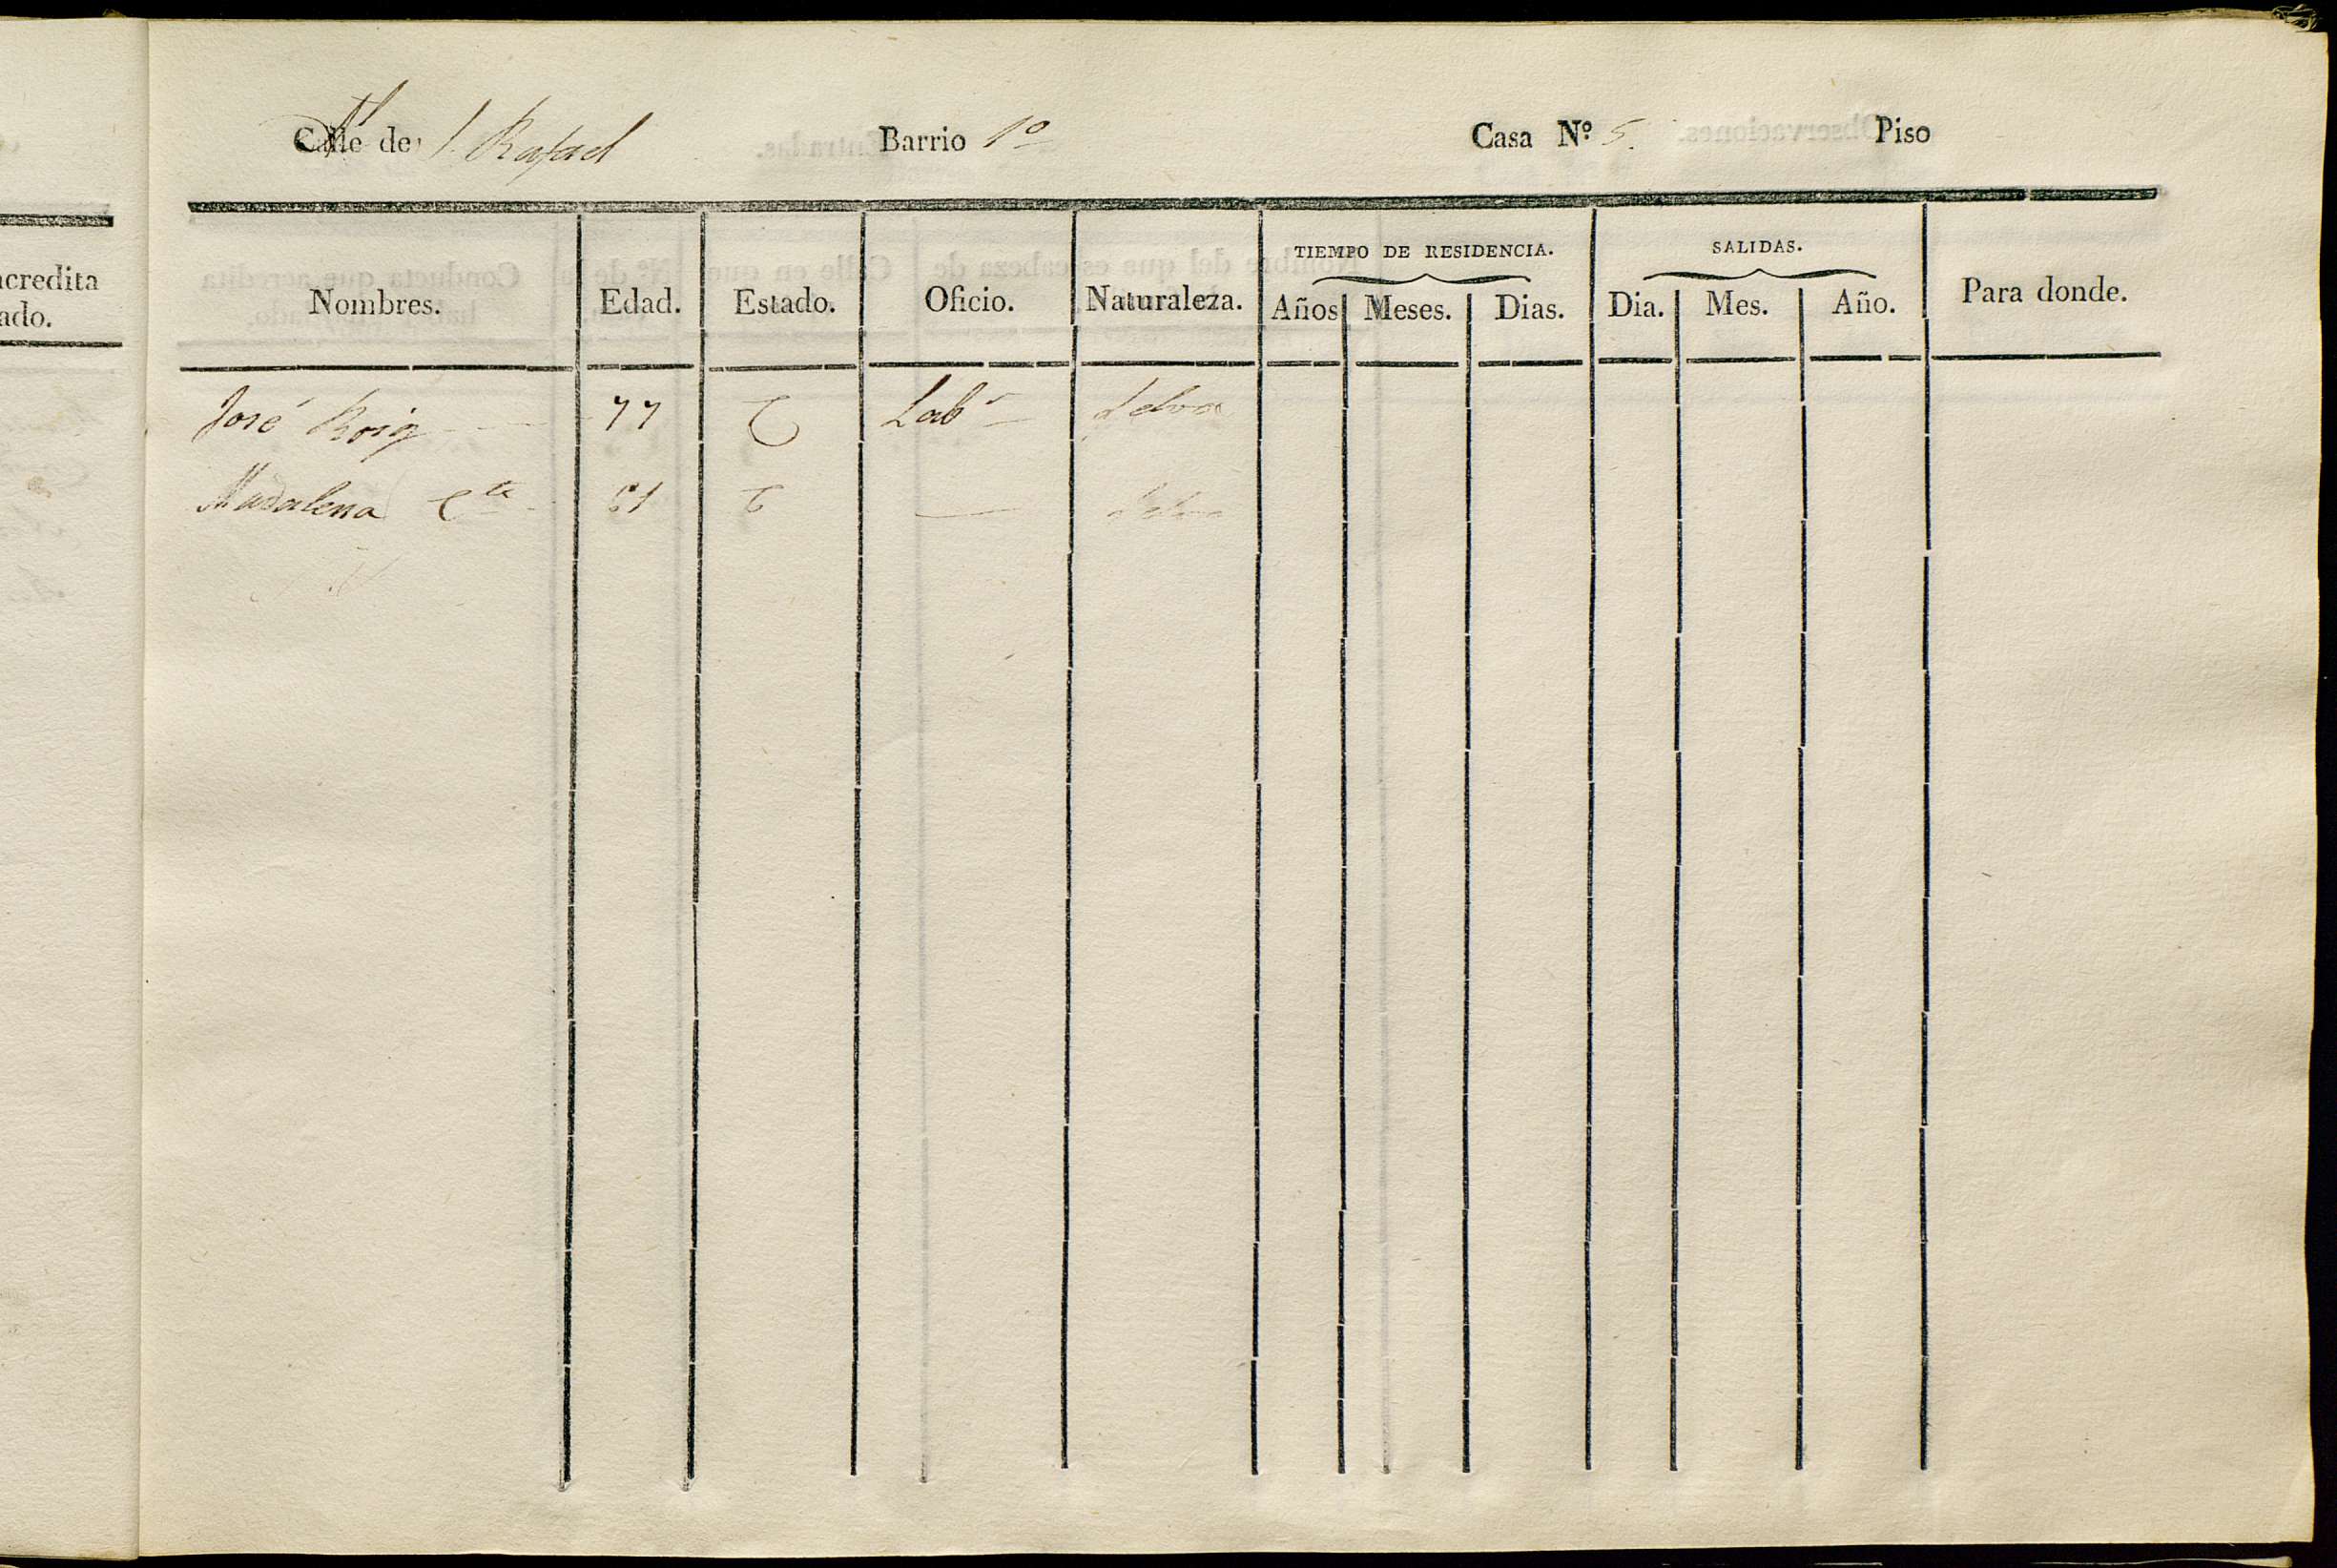 acredita
ado.
Calle de S. Rafael Barrio 1º Casa Nº 5. Piso
TIEMPO DE RESIDENCIA. SALIDAS.
Nombres. Edad. Estado. Oficio. Naturaleza. Años Meses. Dias. Dia. Mes. Año. Para donde.
José Roig 77 C Labr Selva
Madalena Cta 61 C Selva